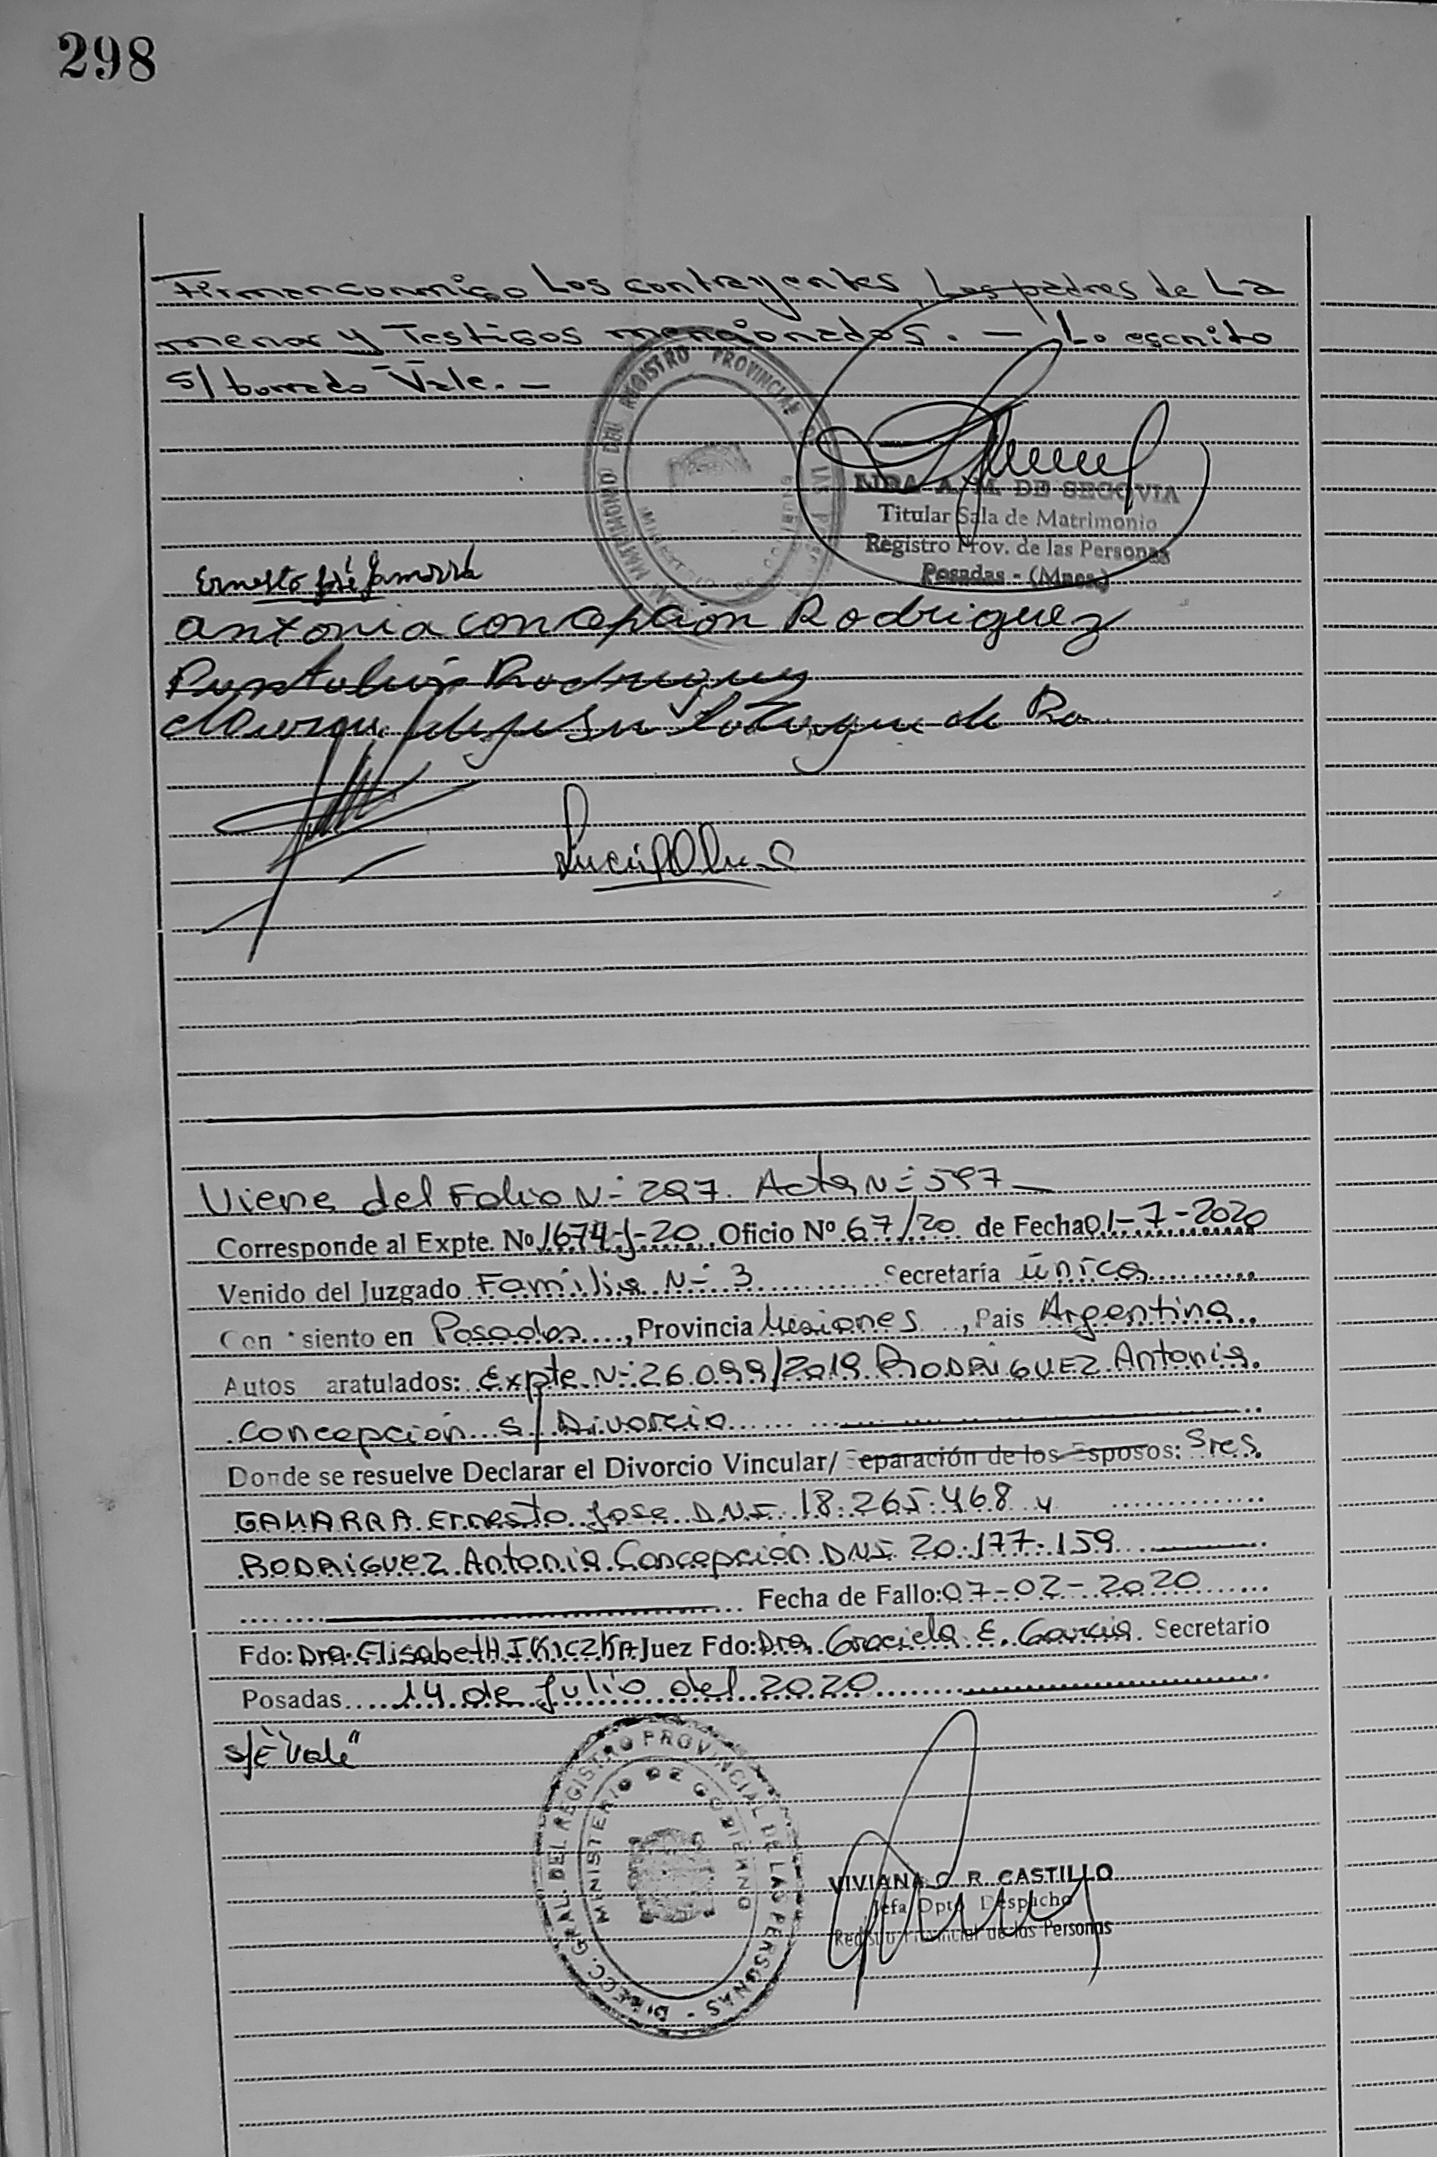 298
Firman conmigo Los contrayentes, Los padres de La
menor y Testigos mencionados. — Lo escrito
s/ borrado "Vale. —
REGISTRO PROVINCIAL DE LAS
A. M. DE SEGOVIA
Titular Sala de Matrimonio
Registro Prov. de las Personas
Posadas - (Mnes)
Ernesto José Gamarra
Antonia Concepcion Rodriguez
Rodriguez
de Ro
Viene del Folio N- 297. Acta N- 597 —
Corresponde al Expte. Nº 1674-J-20 Oficio Nº 67/20 de Fecha 01-7-2020
Venido del Juzgado Familia N- 3 Secretaría única
Con siento en Posadas, Provincia Misiones, Pais Argentina.
Autos aratulados: Expte. N- 26.099/2019 RODRIGUEZ Antonia.
Concepción s/ Divorcio
Donde se resuelve Declarar el Divorcio Vincular/ Separación de los Esposos: Sres.
GAMARRA Ernesto Jose D.N.I. 18.265.468 y
RODRIGUEZ Antonia Concepción DNI 20.177.159
Fecha de Fallo: 07-02-2020
Fdo: Dra. Elisabeth KICZKA Juez Fdo: Dra. Graciela E. Garcia. Secretario
Posadas 14 de Julio del 2020
S/E "Vale"
DIRECC. GRAL. DEL REGISTRO PROVINCIAL DE LAS PERSONAS -
MINISTERIO DE GOBIERNO
VIVIANA C. R. CASTILLO
Jefa Dpto Despacho
Registro Provincial de las Personas